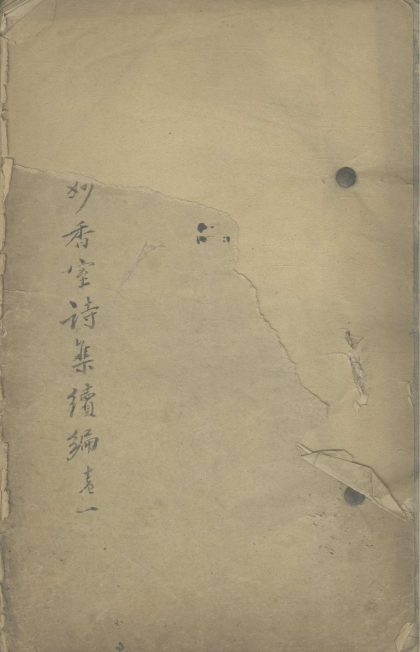 妙香室詩集續編卷一